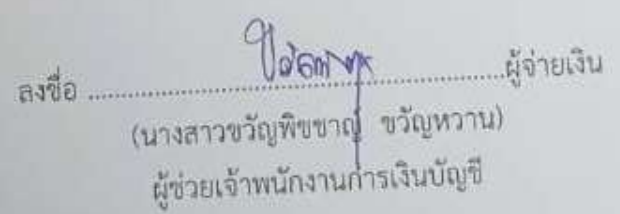 ลงชื่อ ........................................................ผู้จ่ายเงิน
(นางสาวขวัญพิชชาญ์ ขวัญหวาน)
ผู้ช่วยเจ้าพนักงานการเงินบัญชี